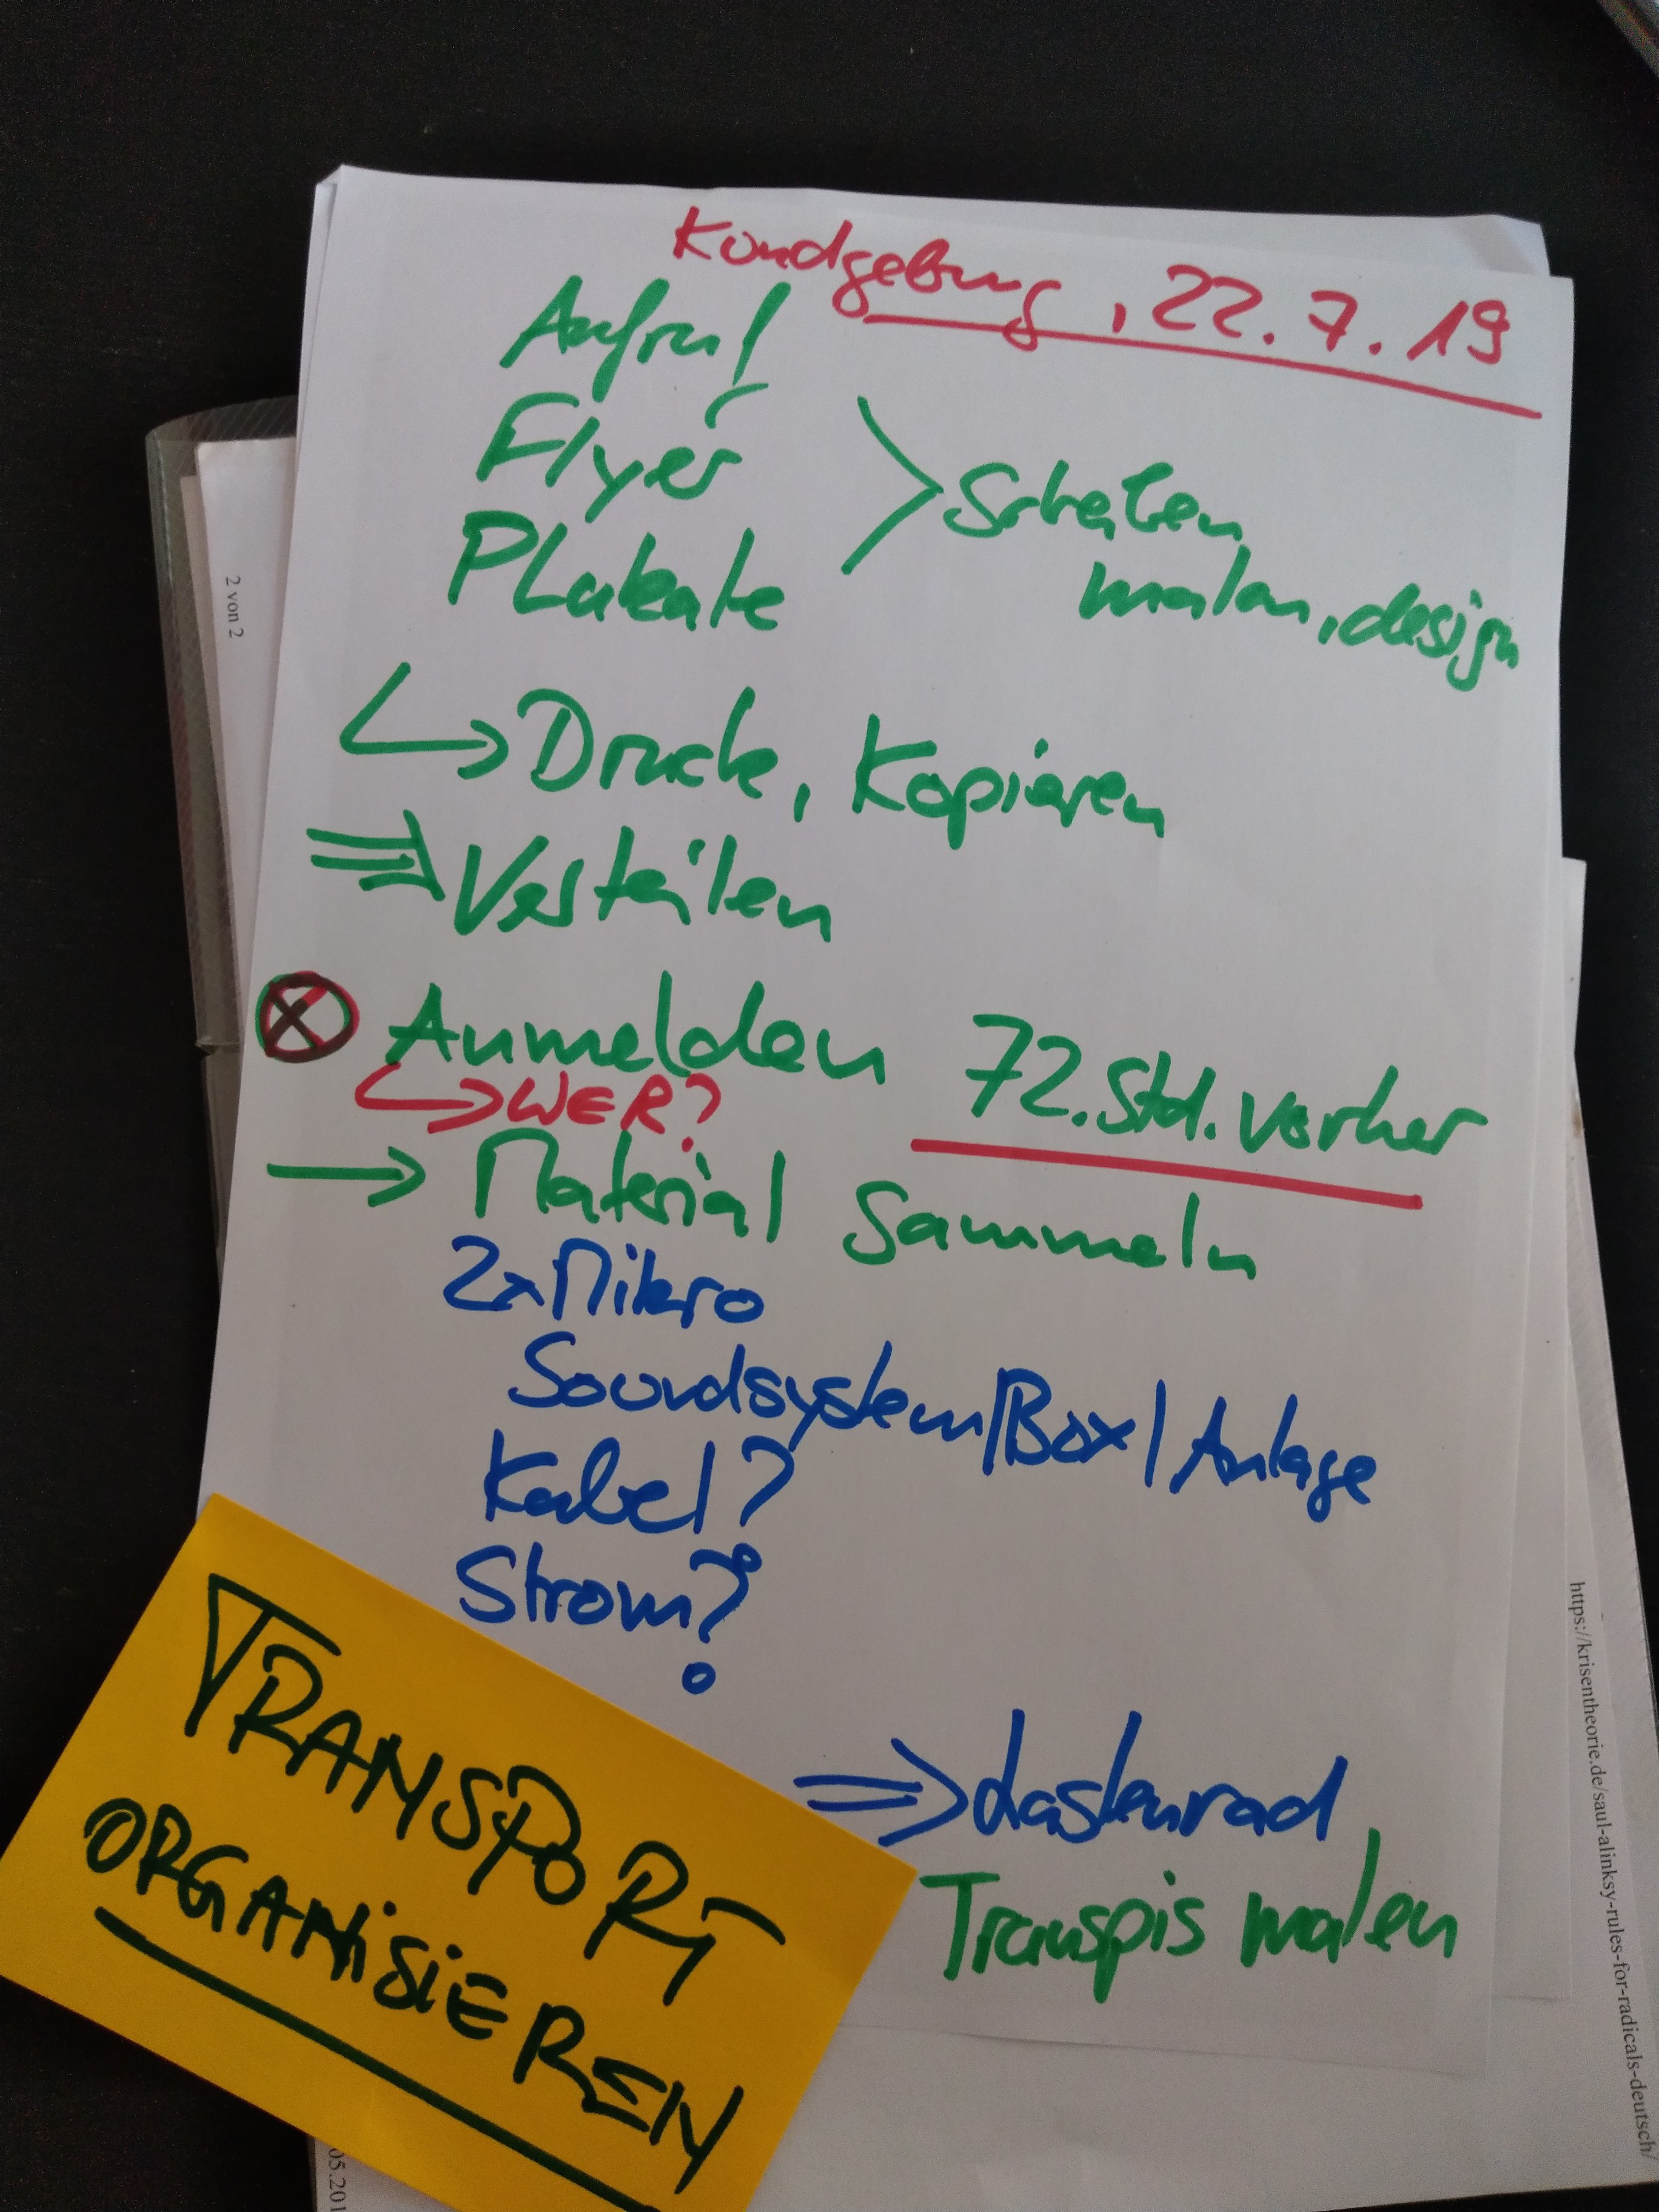 Kundgebung, 22.7.19
Aufruf
Flyer
PLakate
> Schreiben,
malen, design
↳ Druck, Kopieren
⇒ Verteilen
⊗ Anmelden 72.Std.vorher
↳ WER?
→ Material Sammeln
2x Mikro
Soundsystem/Box/Anlage
Kabel?
Strom?
⇒ Lastenrad,
Transpis malen
TRANSPORT
ORGANiSiEREN
2 von 2
https://krisentheorie.de/saul-alinksy-rules-for-radicals-deutsch/
05.201